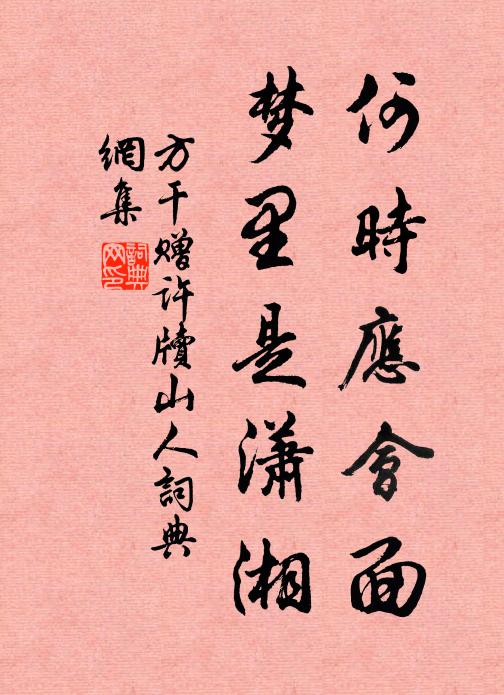 何時應會面
梦里是潇湘
方干赠许牍山人詞典
網集
詞典
网印